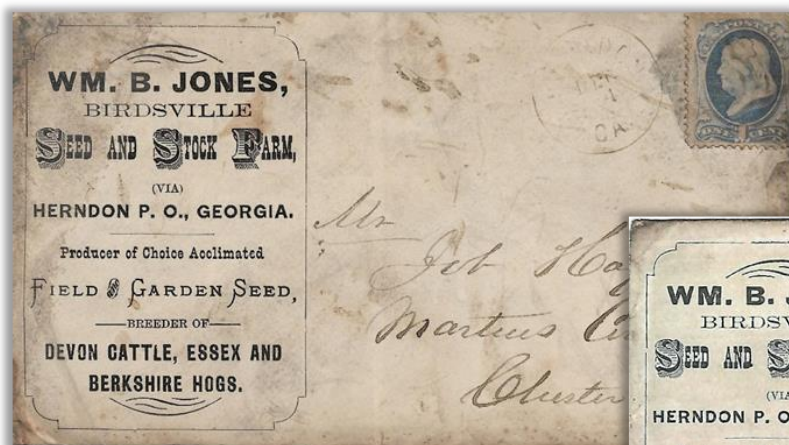 WM. B. JONES,
BIRDSVILLE
SEED AND STOCK FARM,
(VIA)
HERNDON P. O., GEORGIA.
Producer of Choice Acclimated
FIELD & GARDEN SEED,
BREEDER OF
DEVON CATTLE, ESSEX AND
BERKSHIRE HOGS.
GA.
Mr
Martins
Chester
WM. B.
SEED AND
HERNDON P. O